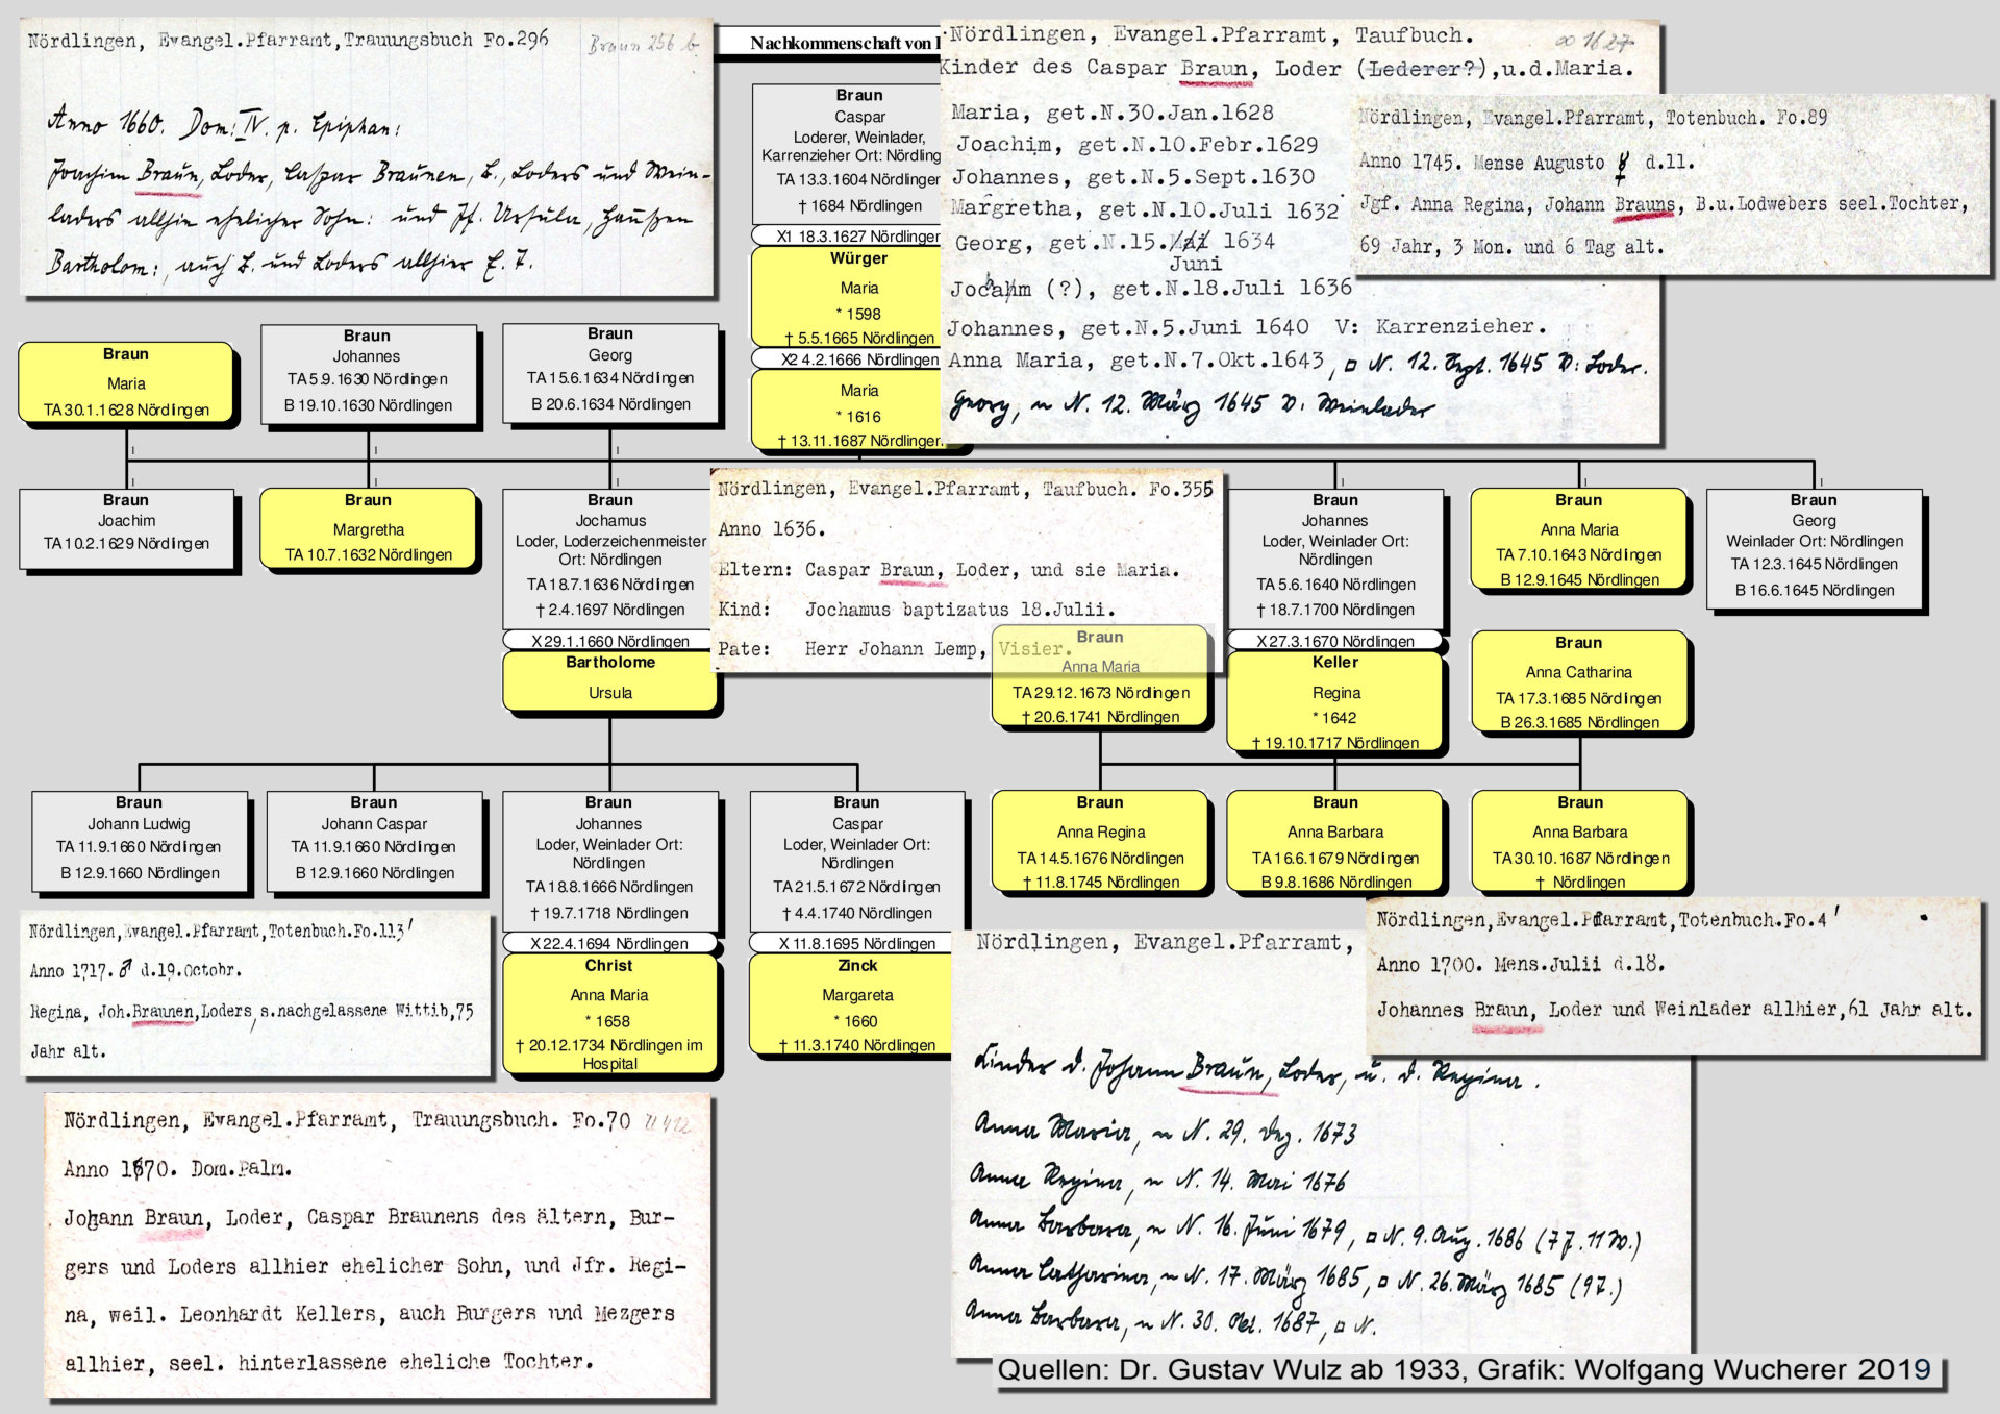 Nördlingen, Evangel.Pfarramt,Trauungsbuch Fo.296
Braun 256 b
Anno 1660. Dom: IV. p. Epiphan:
Joachim Braun, Loder, Caspar Braunen, B., Loders und Wein-
laders allhin ehelicher Sohn: und Jf. Ursula, Haußen
Bartholom: auch B. und Loders allhier E. T.
Nachkommenschaft von
Braun
Caspar
Loderer, Weinlader,
Karrenzieher Ort: Nördling
TA 13.3.1604 Nördlinger
† 1684 Nördlingen
X1 18.3.1627 Nördlinger
Würger
Maria
* 1598
† 5.5.1665 Nördlingen
X2 4.2.1666 Nördlingen
Maria
* 1616
† 13.11.1687 Nördlingen
Nördlingen, Evangel.Pfarramt, Taufbuch.
∞ 1627
Kinder des Caspar Braun, Loder (Lederer?),u.d.Maria.
Maria, get.N.30.Jan.1628
Joachim, get.N.10.Febr.1629
Johannes, get.N.5.Sept.1630
Margretha, get.N.10.Juli 1632
Georg, get.N.15.Mai 1634
Juni
Jocham (?), get.N.18.Juli 1636
Johannes, get.N.5.Juni 1640 V: Karrenzieher.
Anna Maria, get.N.7.Okt.1643, □ N. 12. Sept. 1645 V: Loder.
Georg, ~ N. 12. März 1645 V: Weinlader
Nördlingen, Evangel.Pfarramt, Totenbuch. Fo.89
Anno 1745. Mense Augusto ☿ d.11.
Jgf. Anna Regina, Johann Brauns, B.u.Lodwebers seel.Tochter,
69 Jahr, 3 Mon. und 6 Tag alt.
Braun
Maria
TA 30.1.1628 Nördlingen
Braun
Johannes
TA 5.9.1630 Nördlingen
B 19.10.1630 Nördlingen
Braun
Georg
TA 15.6.1634 Nördlingen
B 20.6.1634 Nördlingen
Braun
Joachim
TA 10.2.1629 Nördlingen
Braun
Margretha
TA 10.7.1632 Nördlingen
Braun
Jochamus
Loder, Loderzeichenmeister
Ort: Nördlingen
TA 18.7.1636 Nördlingen
† 2.4.1697 Nördlingen
X 29.1.1660 Nördlingen
Bartholome
Ursula
Nördlingen, Evangel.Pfarramt, Taufbuch. Fo.355
Anno 1636.
Eltern: Caspar Braun, Loder, und sie Maria.
Kind: Jochamus baptizatus 18.Julii.
Pate: Herr Johann Lemp, Visier.
Braun
Anna Maria
TA 29.12.1673 Nördlingen
† 20.6.1741 Nördlingen
Braun
Johannes
Loder, Weinlader Ort:
Nördlingen
TA 5.6.1640 Nördlingen
† 18.7.1700 Nördlingen
X 27.3.1670 Nördlingen
Keller
Regina
* 1642
† 19.10.1717 Nördlingen
Braun
Anna Maria
TA 7.10.1643 Nördlingen
B 12.9.1645 Nördlingen
Braun
Georg
Weinlader Ort: Nördlingen
TA 12.3.1645 Nördlingen
B 16.6.1645 Nördlingen
Braun
Anna Catharina
TA 17.3.1685 Nördlingen
B 26.3.1685 Nördlingen
Braun
Johann Ludwig
TA 11.9.1660 Nördlingen
B 12.9.1660 Nördlingen
Braun
Johann Caspar
TA 11.9.1660 Nördlingen
B 12.9.1660 Nördlingen
Braun
Johannes
Loder, Weinlader Ort:
Nördlingen
TA 18.8.1666 Nördlingen
† 19.7.1718 Nördlingen
X 22.4.1694 Nördlingen
Christ
Anna Maria
* 1658
† 20.12.1734 Nördlingen im
Hospital
Braun
Caspar
Loder, Weinlader Ort:
Nördlingen
TA 21.5.1672 Nördlingen
† 4.4.1740 Nördlingen
X 11.8.1695 Nördlingen
Zinck
Margareta
* 1660
† 11.3.1740 Nördlingen
Braun
Anna Regina
TA 14.5.1676 Nördlingen
† 11.8.1745 Nördlingen
Braun
Anna Barbara
TA 16.6.1679 Nördlingen
B 9.8.1686 Nördlingen
Braun
Anna Barbara
TA 30.10.1687 Nördlingen
† Nördlingen
Nördlingen,Evangel.Pfarramt,Totenbuch.Fo.113'
Anno 1717. ♂ d.19.Octobr.
Regina, Joh.Braunen,Loders, s.nachgelassene Wittib,75
Jahr alt.
Nördlingen, Evangel.Pfarramt, Trauungsbuch. Fo.70
Anno 1670. Dom.Palm.
Johann Braun, Loder, Caspar Braunens des ältern, Bur-
gers und Loders allhier ehelicher Sohn, und Jfr. Regi-
na, weil. Leonhardt Kellers, auch Burgers und Mezgers
allhier, seel. hinterlassene eheliche Tochter.
Nördlingen, Evangel.Pfarramt,
Kinder d. Johann Braun, Loder, u. d. Regina.
Anna Maria, ~ N. 29. Dez. 1673
Anna Regina, ~ N. 14. Mai 1676
Anna Barbara, ~ N. 16. Juni 1679, □ N. 9. Aug. 1686 (7 J. 11 W.)
Anna Catharina, ~ N. 17. März 1685, □ N. 26. März 1685 (9 T.)
Anna Barbara, ~ N. 30. Okt. 1687, □ N.
Nördlingen,Evangel.Pfarramt,Totenbuch.Fo.4'
Anno 1700. Mens.Julii d.18.
Johannes Braun, Loder und Weinlader allhier,61 Jahr alt.
Quellen: Dr. Gustav Wulz ab 1933, Grafik: Wolfgang Wucherer 2019